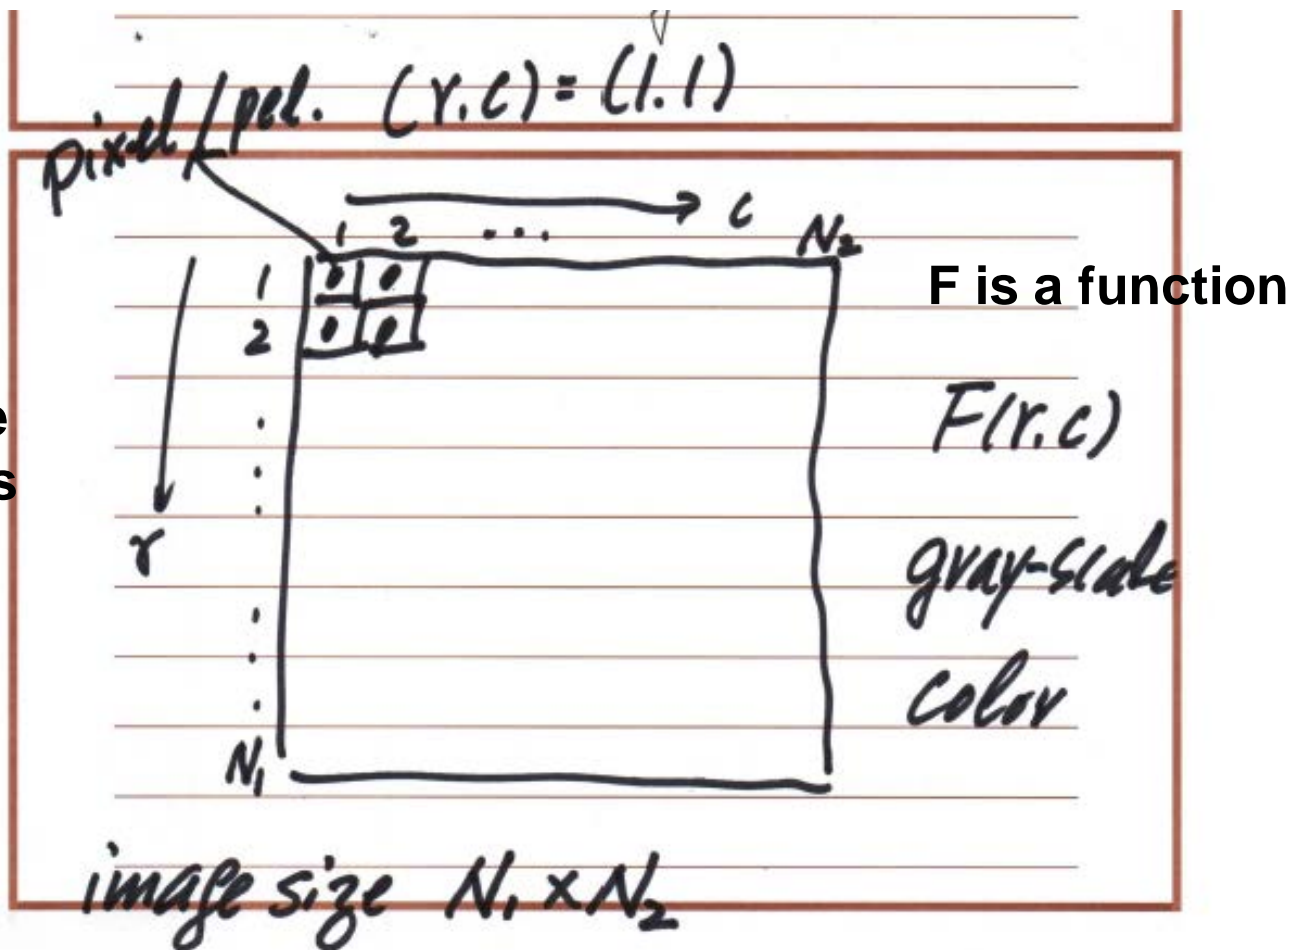 pixel/pel. (r.c) = (1.1)
→ c
1 2 ... N₂
1
2
F is a function
F(r.c)
r
gray-scale
color
N₁
image size N₁ × N₂